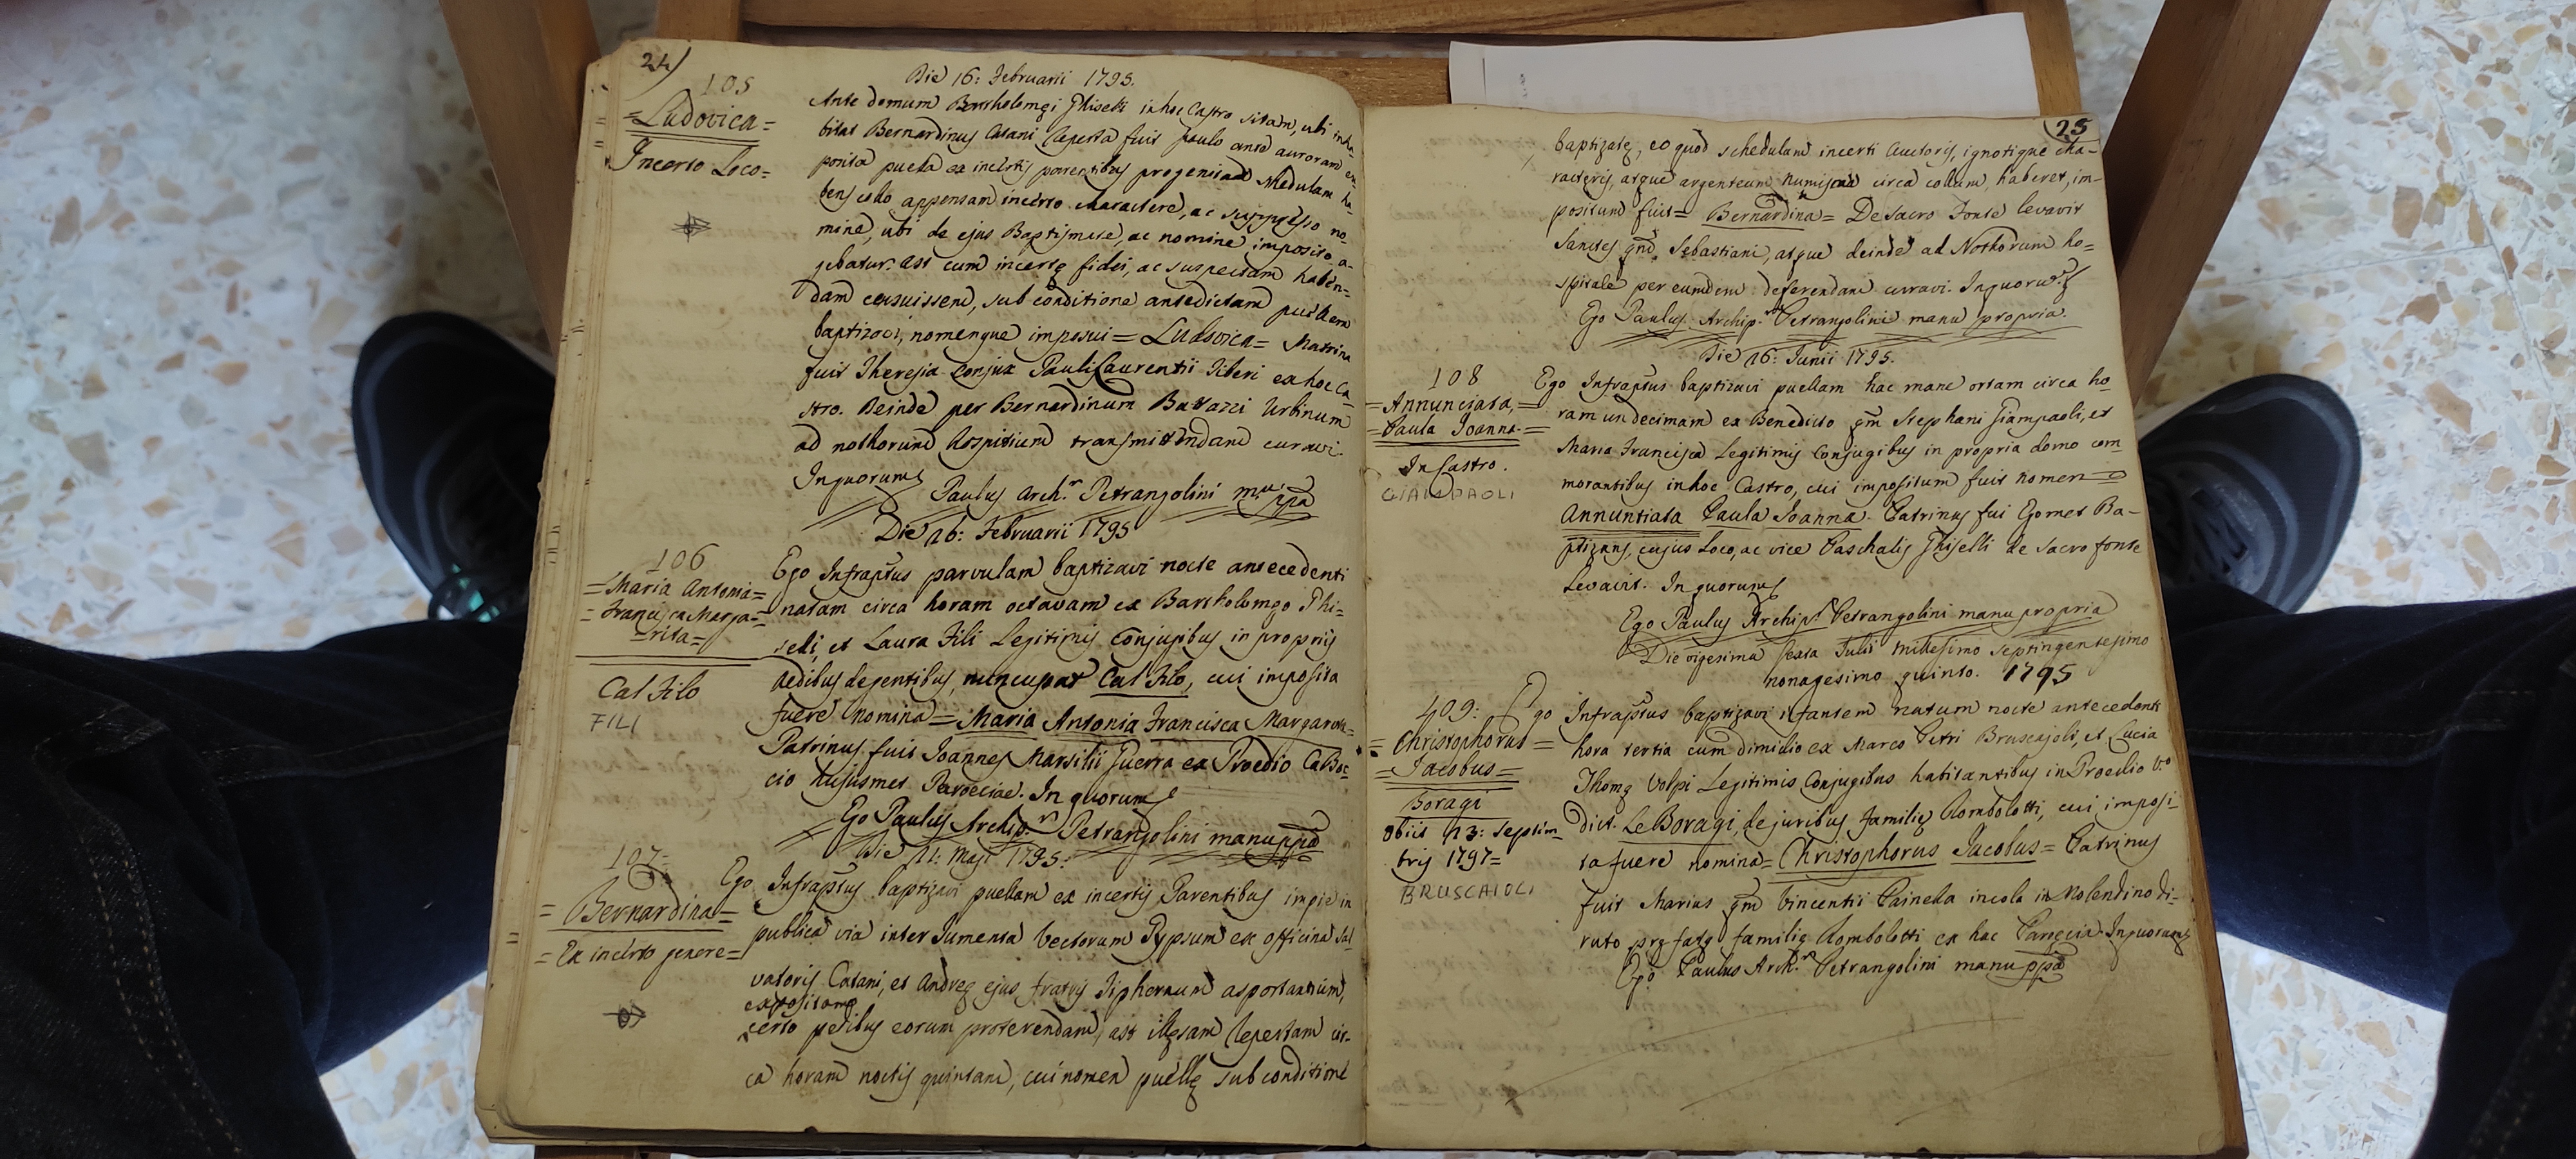 24)
105
=Ludovica=
Incerto Loco=
Die 16: Februarii 1795.
Ante domum Bartholomęi Ghiselli in hoc Castro sitam, ubi inha-
bitat Bernardinus Catani reperta fuit paulo ante auroram ex-
posita puella ex incertis parentibus progenitam schedulam ha-
bens collo appensam incerto charactere, ac suppresso no-
mine, ubi de ejus Baptismate, ac nomine imposito a-
gebatur. ast cum incertę fidei, ac suspectam haben-
dam censuissem, sub conditione antedictam puellam
baptizavi, nomenque imposui = Ludovica = Matrina
fuit Theresia Conjux Pauli Laurentii Tiberi ex hoc Ca-
stro. Deinde per Bernardinum Battazzi Urbinum
ad nothorum hospitium transmittendam curavi.
In quorum
Paulus Arch.r Petrangolini mnu ppa
Die 16: Februarii 1795
106
=Maria Antonia=
=Francisca Marga=
=rita=
Cal Filo
FILI
Ego Infraptus parvulam baptizavi nocte antecedenti
natam circa horam octavam ex Bartholomęo Ghi=
selli, et Laura Fili Legitimis Conjugibus in propriis
Aedibus degentibus, nuncupat Cal Filo, cui imposita
fuere nomina = Maria Antonia Francisca Margarita=
Patrinus fuit Joannes Marsilii Guerra ex Proedio CaBoc-
cio hujusmet Paroeciae. In quorum
Ego Paulus Archip.r Petrangolini manu ppa
Die 11: Maji 1795:
107=
=Bernardina=
=Ex incerto genere=
Ego Infraptus baptizavi puellam ex incertis Parentibus impie in
publica via inter Jumenta Vectorum Gypsum ex officina Sal
vatoris Catani, et Andreę ejus fratris Tiphernum asportantium,
expositam
certo pedibus eorum proterendam, ast illęsam repertam cir-
ca horam noctis quintam, cui nomen puellę sub conditione
25
baptizatę, eo quod schedulam incerti Auctoris, ignotique cha-
racteris, atque argenteum numisma circa collum haberet, im-
positum fuit = Bernardina = De Sacro Fonte levavit
Sanctes qm̃ Sebastiani, atque deinde ad Nothorum ho=
spitale per eumdem deferendam curavi. In quorum
Ego Paulus Archip.r Petrangolini manu propria.
Die 16: Junii 1795.
108
=Annunciata,=
=Paula Joanna.=
In Castro.
GIAMPAOLI
Ego Infraptus baptizavi puellam hac mane ortam circa ho-
ram undecimam ex Benedicto qm̃ Stephani Giampaoli, et
Maria Francisca Legitimis Conjugibus in propria domo com
morantibus in hoc Castro, cui impositum fuit nomen =
Annuntiata Paula Joanna. Patrinus fui Egomet Ba-
ptizans, cujus loco, ac vice Paschalis Ghiselli de sacro fonte
levavit. In quorum
Ego Paulus Archip.r Petrangolini manu propria
Die vigesima sexta Julii millesimo septingentesimo
nonagesimo quinto. 1795
109:
=Christophorus=
=Jacobus=
Boragi
obiit 13: Septem-
bris 1797=
BRUSCAIOLI
Ego Infraptus baptizavi infantem natum nocte antecedenti
hora tertia cum dimidio ex Marco Petri Bruscajoli, et Lucia
Thomę Volpi Legitimis Conjugibus habitantibus in Proedio V.o
dict. Le Boragi, de juribus familię Rombolotti, cui imposi-
ta fuere nomina = Christophorus Jacobus = Patrinus
fuit Marius qm̃ Vincentii Painella incola in Molendino di-
ruto pręfatę familię Rombolotti ex hac Paroecia. In quorum
Ego Paulus Arch.r Petrangolini manu ppa